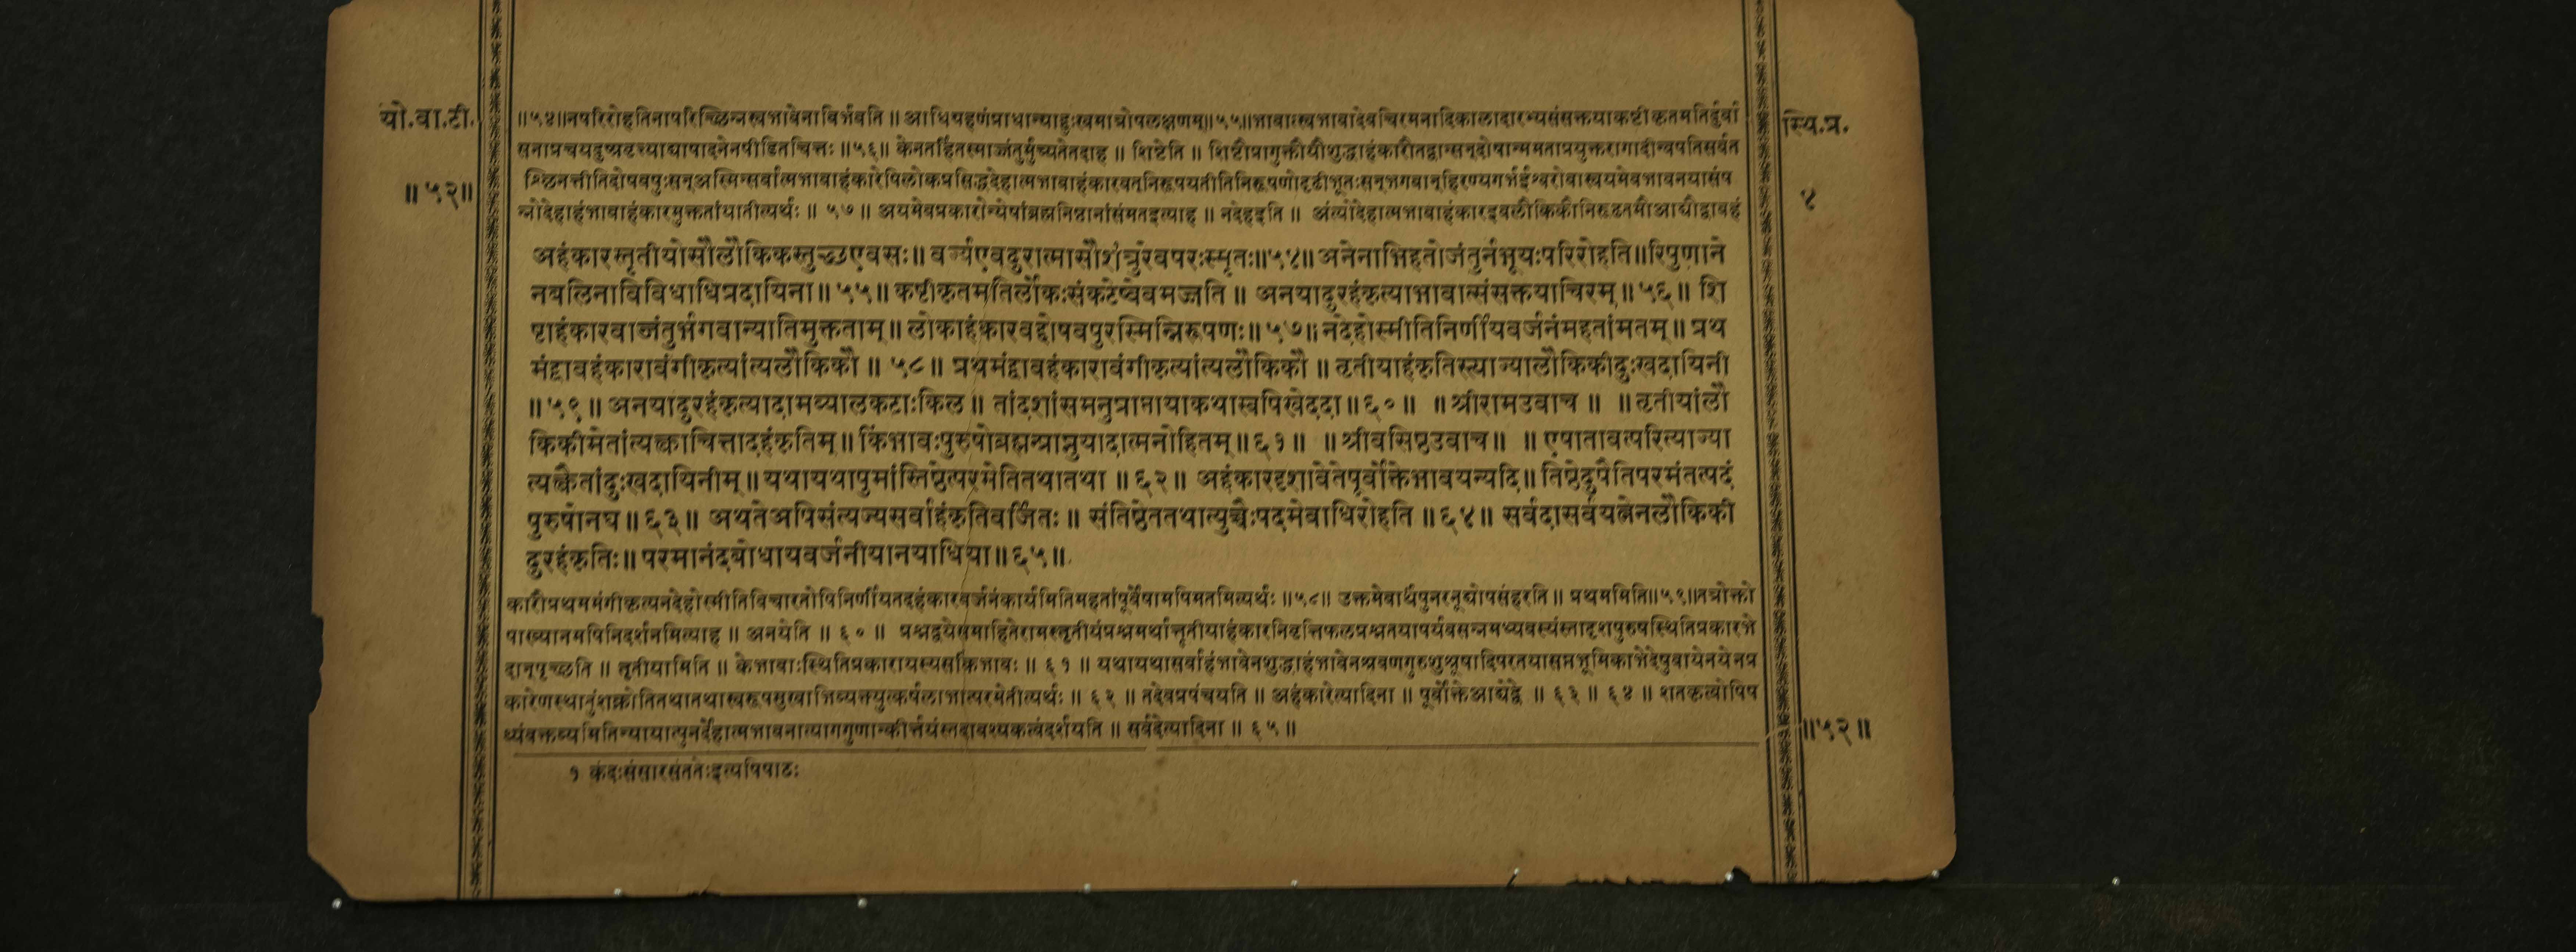 यो.वा.टी.
॥५२॥
स्थि.प्र.
४
॥५४॥नपरिरोहतिनापरिच्छिन्नस्वभावेनाविर्भवति॥आधिग्रहणंप्राधान्याद्दुःखमात्रोपलक्षणम्॥५५॥भावात्स्वभावादेवचिरमनादिकालादारभ्यसंसक्तयाकष्टीकृतमतिर्दुर्वा
सनाप्रचयदुष्प्रवृत्त्याद्यापादनेनपीडितचित्तः॥५६॥ केनतर्हितस्माज्जंतुर्मुच्यतेतदाह॥ शिष्टेति॥ शिष्टौप्रागुक्तौयौशुद्धाहंकारौतद्वान्सन्दोषान्ममताप्रयुक्तरागादीन्वपतिसर्वत
श्छिनत्तीतिदोषवपुःसन्अस्मिन्सर्वात्मभावाहंकारेपिलोकप्रसिद्धदेहात्मभावाहंकारवन्निरूपयतीतिनिरूपणोदृढीभूतःसन्भगवान्हिरण्यगर्भईश्वरोवास्वयमेवभावनयासंप
न्नोदेहाहंभावाहंकारमुक्ततांयातीत्यर्थः॥ ५७॥ अयमेवप्रकारोन्येषांब्रह्मनिष्ठानांसंमतइत्याह॥ नदेहइति॥ अंत्योदेहात्मभावाहंकारइवलौकिकौनिरूढतमौआद्यौद्वावहं
अहंकारस्तृतीयोसौलौकिकस्तुच्छएवसः॥वर्ज्यएवदुरात्मासौशत्रुरेवपरःस्मृतः॥५४॥अनेनाभिहतोजंतुर्नभूयःपरिरोहति॥रिपुणाने
नबलिनाविविधाधिप्रदायिना॥५५॥कष्टीकृतमतिर्लोकःसंकटेष्वेवमज्जति॥ अनयादुरहंकृत्याभावात्संसक्तयाचिरम्॥५६॥ शि
ष्टाहंकारवाञ्जंतुर्भगवान्यातिमुक्तताम्॥लोकाहंकारवद्दोषवपुरस्मिन्निरूपणः॥५७॥नदेहोस्मीतिनिर्णीयवर्जनंमहतांमतम्॥प्रथ
मंद्वावहंकारावंगीकृत्यांत्यलौकिकौ॥ ५८॥ प्रथमंद्वावहंकारावंगीकृत्यांत्यलौकिकौ॥तृतीयाहंकृतिस्त्याज्यालौकिकीदुःखदायिनी
॥५९॥अनयादुरहंकृत्यादामव्यालकटाःकिल॥ तांदशांसमनुप्राप्तायाकथास्वपिखेददा॥६०॥ ॥श्रीरामउवाच॥ ॥तृतीयांलौ
किकीमेतांत्यक्त्वाचित्तादहंकृतिम्॥किंभावःपुरुषोब्रह्मन्प्राप्नुयादात्मनोहितम्॥६१॥ ॥श्रीवसिष्ठउवाच॥ ॥एषातावत्परित्याज्या
त्यक्त्वैतांदुःखदायिनीम्॥यथायथापुमांस्तिष्ठेत्परमेतितथातथा॥६२॥ अहंकारदृशावेतेपूर्वोक्तेभावयन्यदि॥तिष्ठेदुपैतिपरमंतत्पदं
पुरुषोनघ॥६३॥ अथतेअपिसंत्यज्यसर्वाहंकृतिवर्जितः॥ संतिष्ठेततथात्युच्चैःपदमेवाधिरोहति॥६४॥ सर्वदासर्वयत्नेनलौकिकी
दुरहंकृतिः॥परमानंदबोधायवर्जनीयानयाधिया॥६५॥
कारौप्रथममंगीकृत्यनदेहोस्मीतिविचारतोपिनिर्णीयतदहंकारवर्जनंकार्यमितिमहतांपूर्वेषामपिमतमित्यर्थः॥५८॥ उक्तमेवार्थंपुनरनूद्योपसंहरति॥ प्रथममिति॥५९॥तत्रोक्तो
पाख्यानमपिनिदर्शनमित्याह॥ अनयेति॥ ६०॥ प्रश्नद्वयेसमाहितेरामस्तृतीयंप्रश्नमर्थात्तृतीयाहंकारनिवृत्तिफलप्रश्नतयापर्यवसन्नमध्यवस्यंस्तादृशपुरुषस्थितिप्रकारभे
दान्पृच्छति॥ तृतीयामिति॥ केभावाःस्थितिप्रकारायस्यसकिंभावः॥ ६१॥ यथायथासर्वाहंभावेनशुद्धाहंभावेनश्रवणगुरुशुश्रूषादिपरतयासप्तभूमिकाभेदेषुवायेनयेनप्र
कारेणस्थातुंशक्नोतितथातथास्वरूपसुखाभिव्यक्त्युत्कर्षलाभात्परमेतीत्यर्थः॥ ६२॥ तदेवप्रपंचयति॥ अहंकारेत्यादिना॥ पूर्वोक्तेआद्येद्वे॥ ६३॥ ६४॥ शतकृत्वोपिप
थ्यंवक्तव्यमितिन्यायात्पुनर्देहात्मभावनात्यागगुणान्कीर्तयंस्तदावश्यकत्वंदर्शयति॥ सर्वदेत्यादिना॥ ६५॥
॥५२॥
१ कंदःसंसारसंततेःइत्यपिपाठः